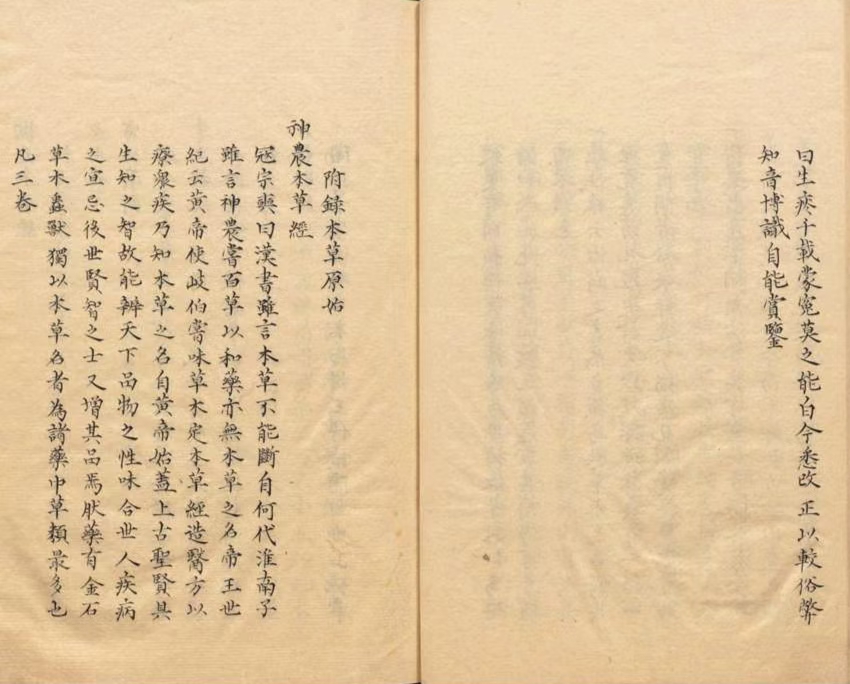 曰生疼千載蒙寃莫之能白今悉改正以較俗弊
知音博識自能賞鑒
附録本草原始
神農本草經
冦宗奭曰漢書雖言本草不能斷自何代淮南子
雖言神農嘗百草以和藥亦無本草之名帝王世
紀云黄帝使歧伯嘗味草木定本草經造醫方以
療衆疾乃知本草之名自黄帝始蓋上古聖賢具
生知之智故能辨天下品物之性味合世人疾病
之宣忌後世賢智之士又増其品焉肰藥有金石
草木蟲獸獨以本草名者為諸藥中草類最多也
凡三卷